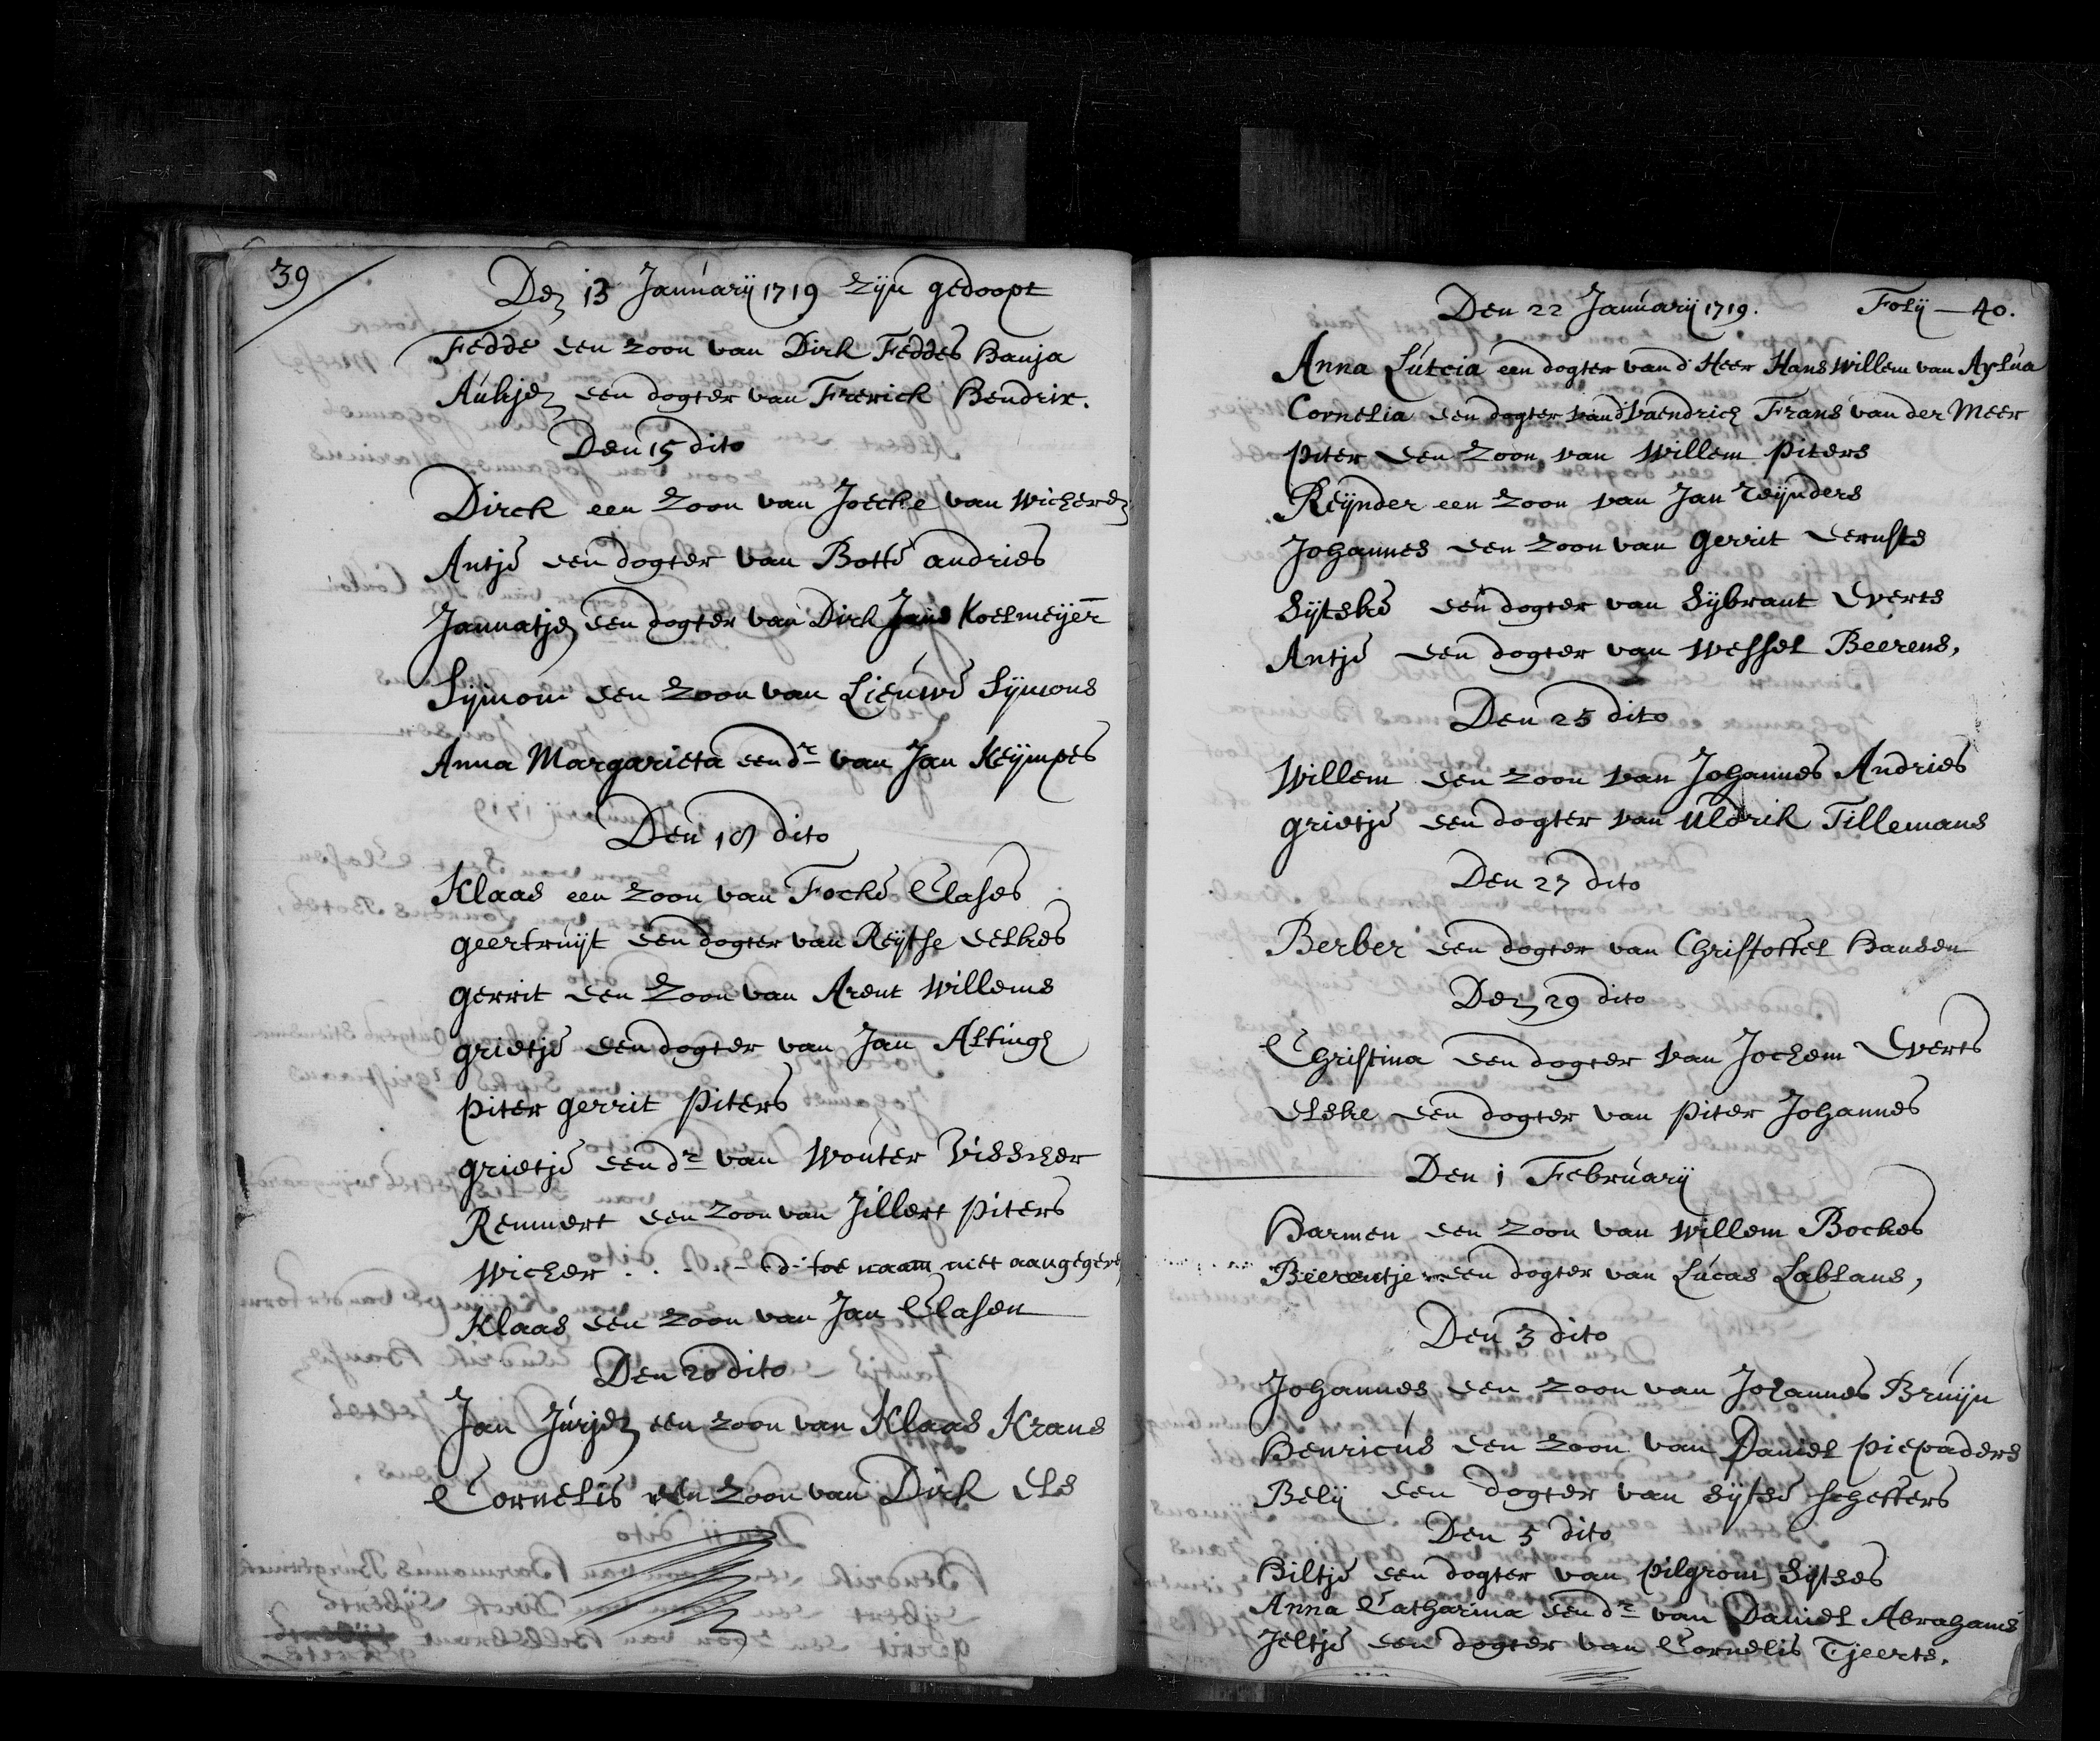 39
Den 13 Januarij 1719 zijn gedoopt
Fedde een zoon van Dirk Feddes Hanja
Aukjen een dogter van Frerick Hendrix.
Den 15 dito
Dirck een zoon van Joecke van Wicheren
Antje een dogter van Botte andries
Jannatjen een dogter van Dirk Jans Koelmeijer
Sijmon een zoon van Lieuwe Sijmons
Anna Margarieta een dr van Jan Keijmpes
Den 18 dito
Klaas een zoon van Focke Clases
geertruijt een dogter van Reijtse eelkes
gerrit een zoon van Arent Willems
grietje een dogter van Jan Altingh
piter gerrit piters
grietje een dr van Wouter Visscher
Remmert een zoon van Jillert piters
Wicher . . . . - d: toe naam niet aangegeven
Klaas een zoon van Jan Clasen
Den 20 dito
Jan Jurjen een zoon van Klaas Krans
Cornelis een zoon van Dirk Els
Den 22 Januarij 1719. Folij — 40.
Anna Lutcia een dogter van d Heer Hans Willem van Aylua
Cornelia een dogter van d Vaendrich Frans van der Meer
piter een zoon van Willem piters
Reijnder een zoon van Jan reijnders
Johannes een zoon van gerrit eernsts
Sijtske een dogter van Sijbrant Everts
Antje een dogter van Wessel Beerens,
Den 25 dito
Willem een zoon van Johannes Andries
grietje een dogter van Uldrik Tillemans
Den 27 dito
Berber een dogter van Christoffel Hansen
Den 29 dito
Christina een dogter van Jochem Everts
Elske een dogter van piter Johannes
Den 1 Februarij
Harmen een zoon van Willem Bockes
Beerentje een dogter van Lucas Lablans,
Den 3 dito
Johannes een zoon van Johannes Bruijn
Henricus een zoon van Daniel piepaders
Belij een dogter van Sijtse scheffers
Den 5 dito
Hiltje een dogter van pilgrom Sijtses
Anna Catharina een dr van Daniel Abrahams
Jeltje een dogter van Cornelis Tjeerts.